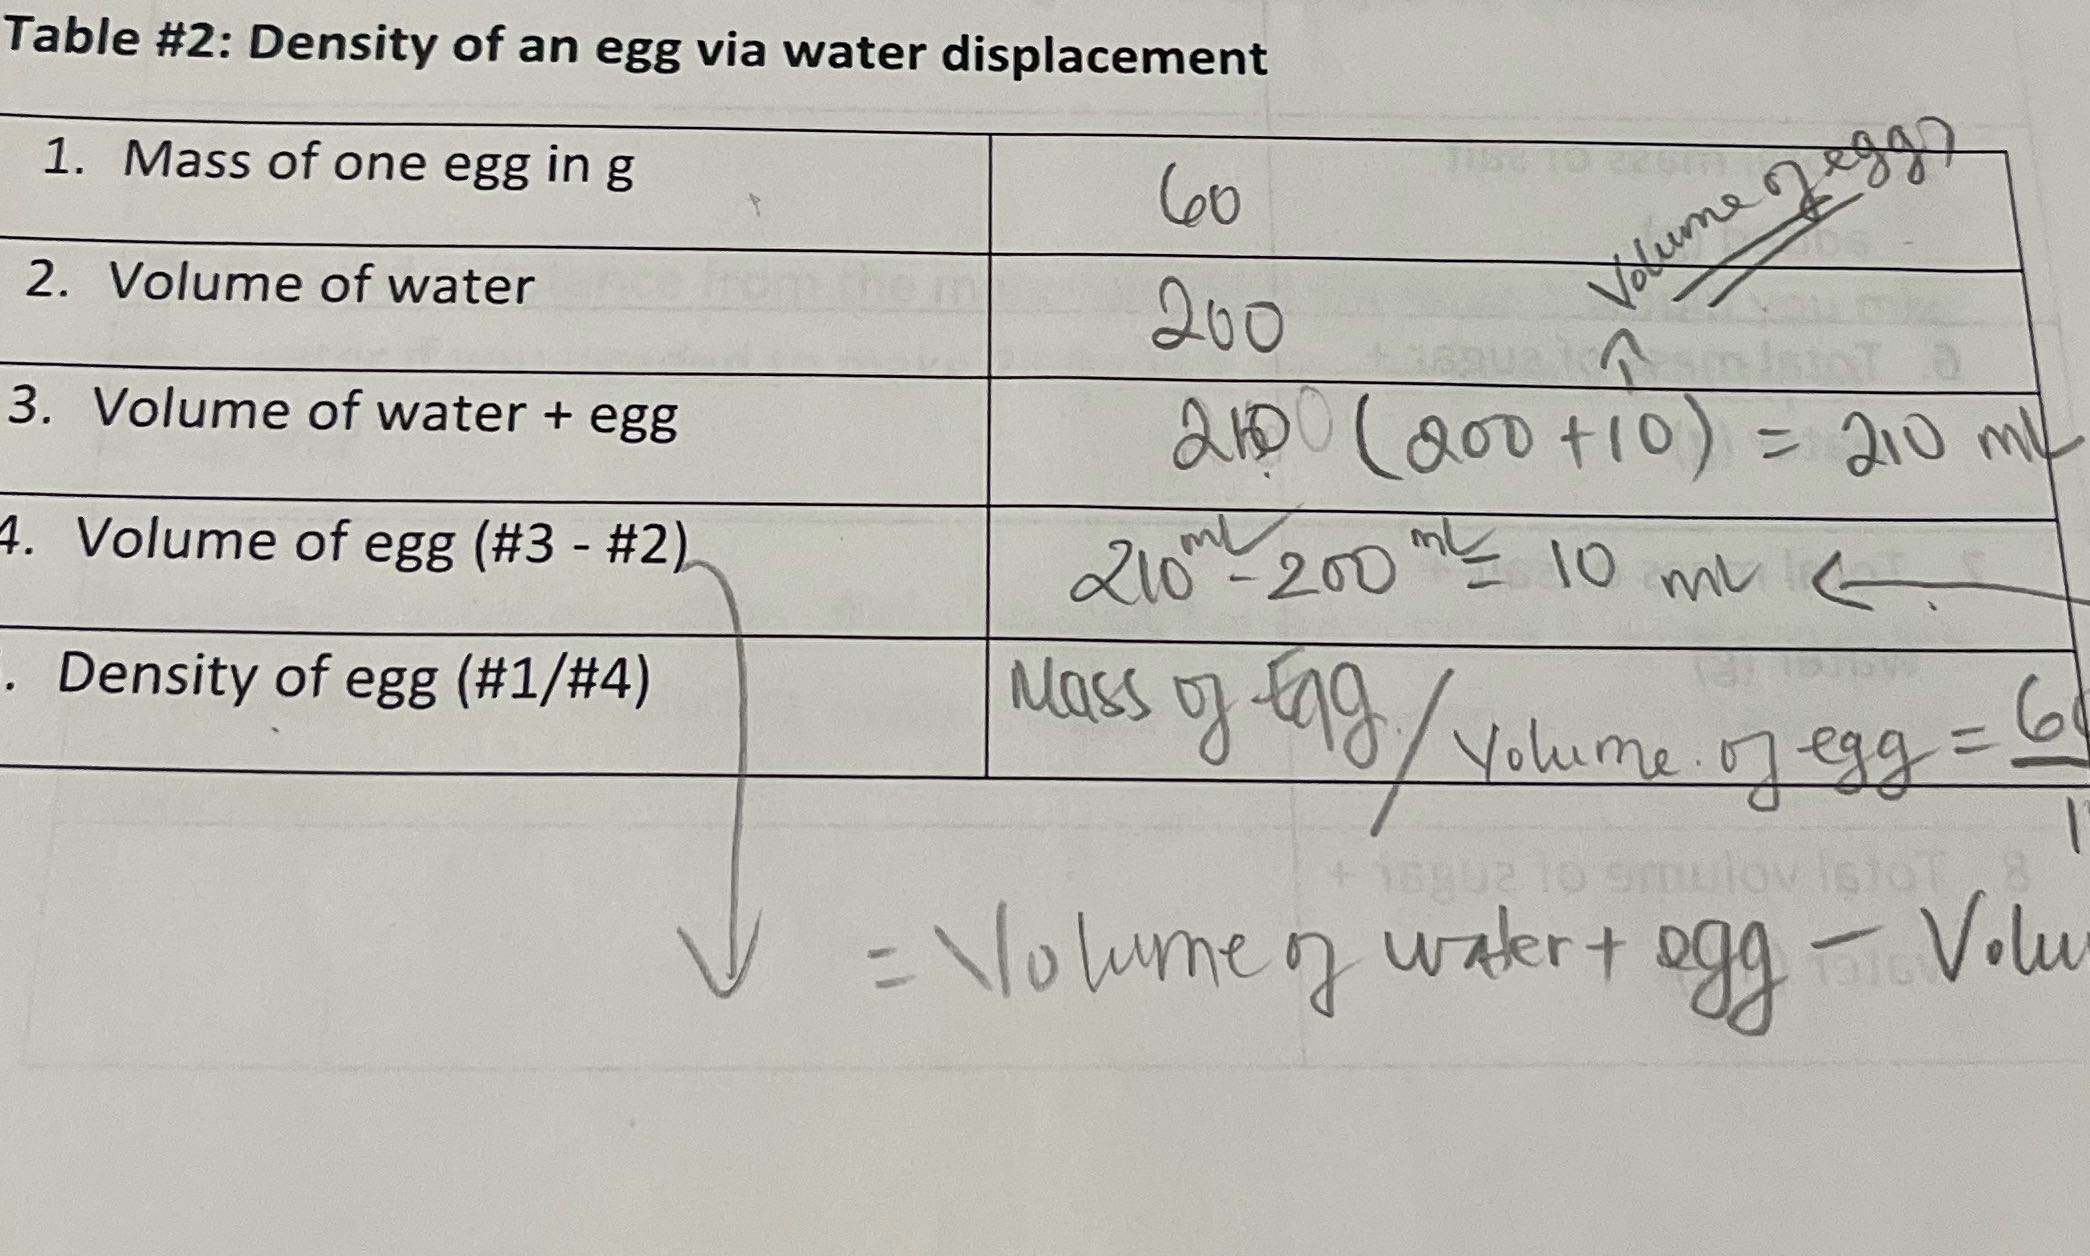 Table #2: Density of an egg via water displacement
1. Mass of one egg in g 60
Volume of egg
2. Volume of water 200
3. Volume of water + egg 210 (200 + 10) = 210 ml
4. Volume of egg (#3 - #2) 210 ml - 200 ml = 10 ml
. Density of egg (#1/#4) Mass of Egg / Volume of egg = 60
1
= Volume of water + egg - Volu